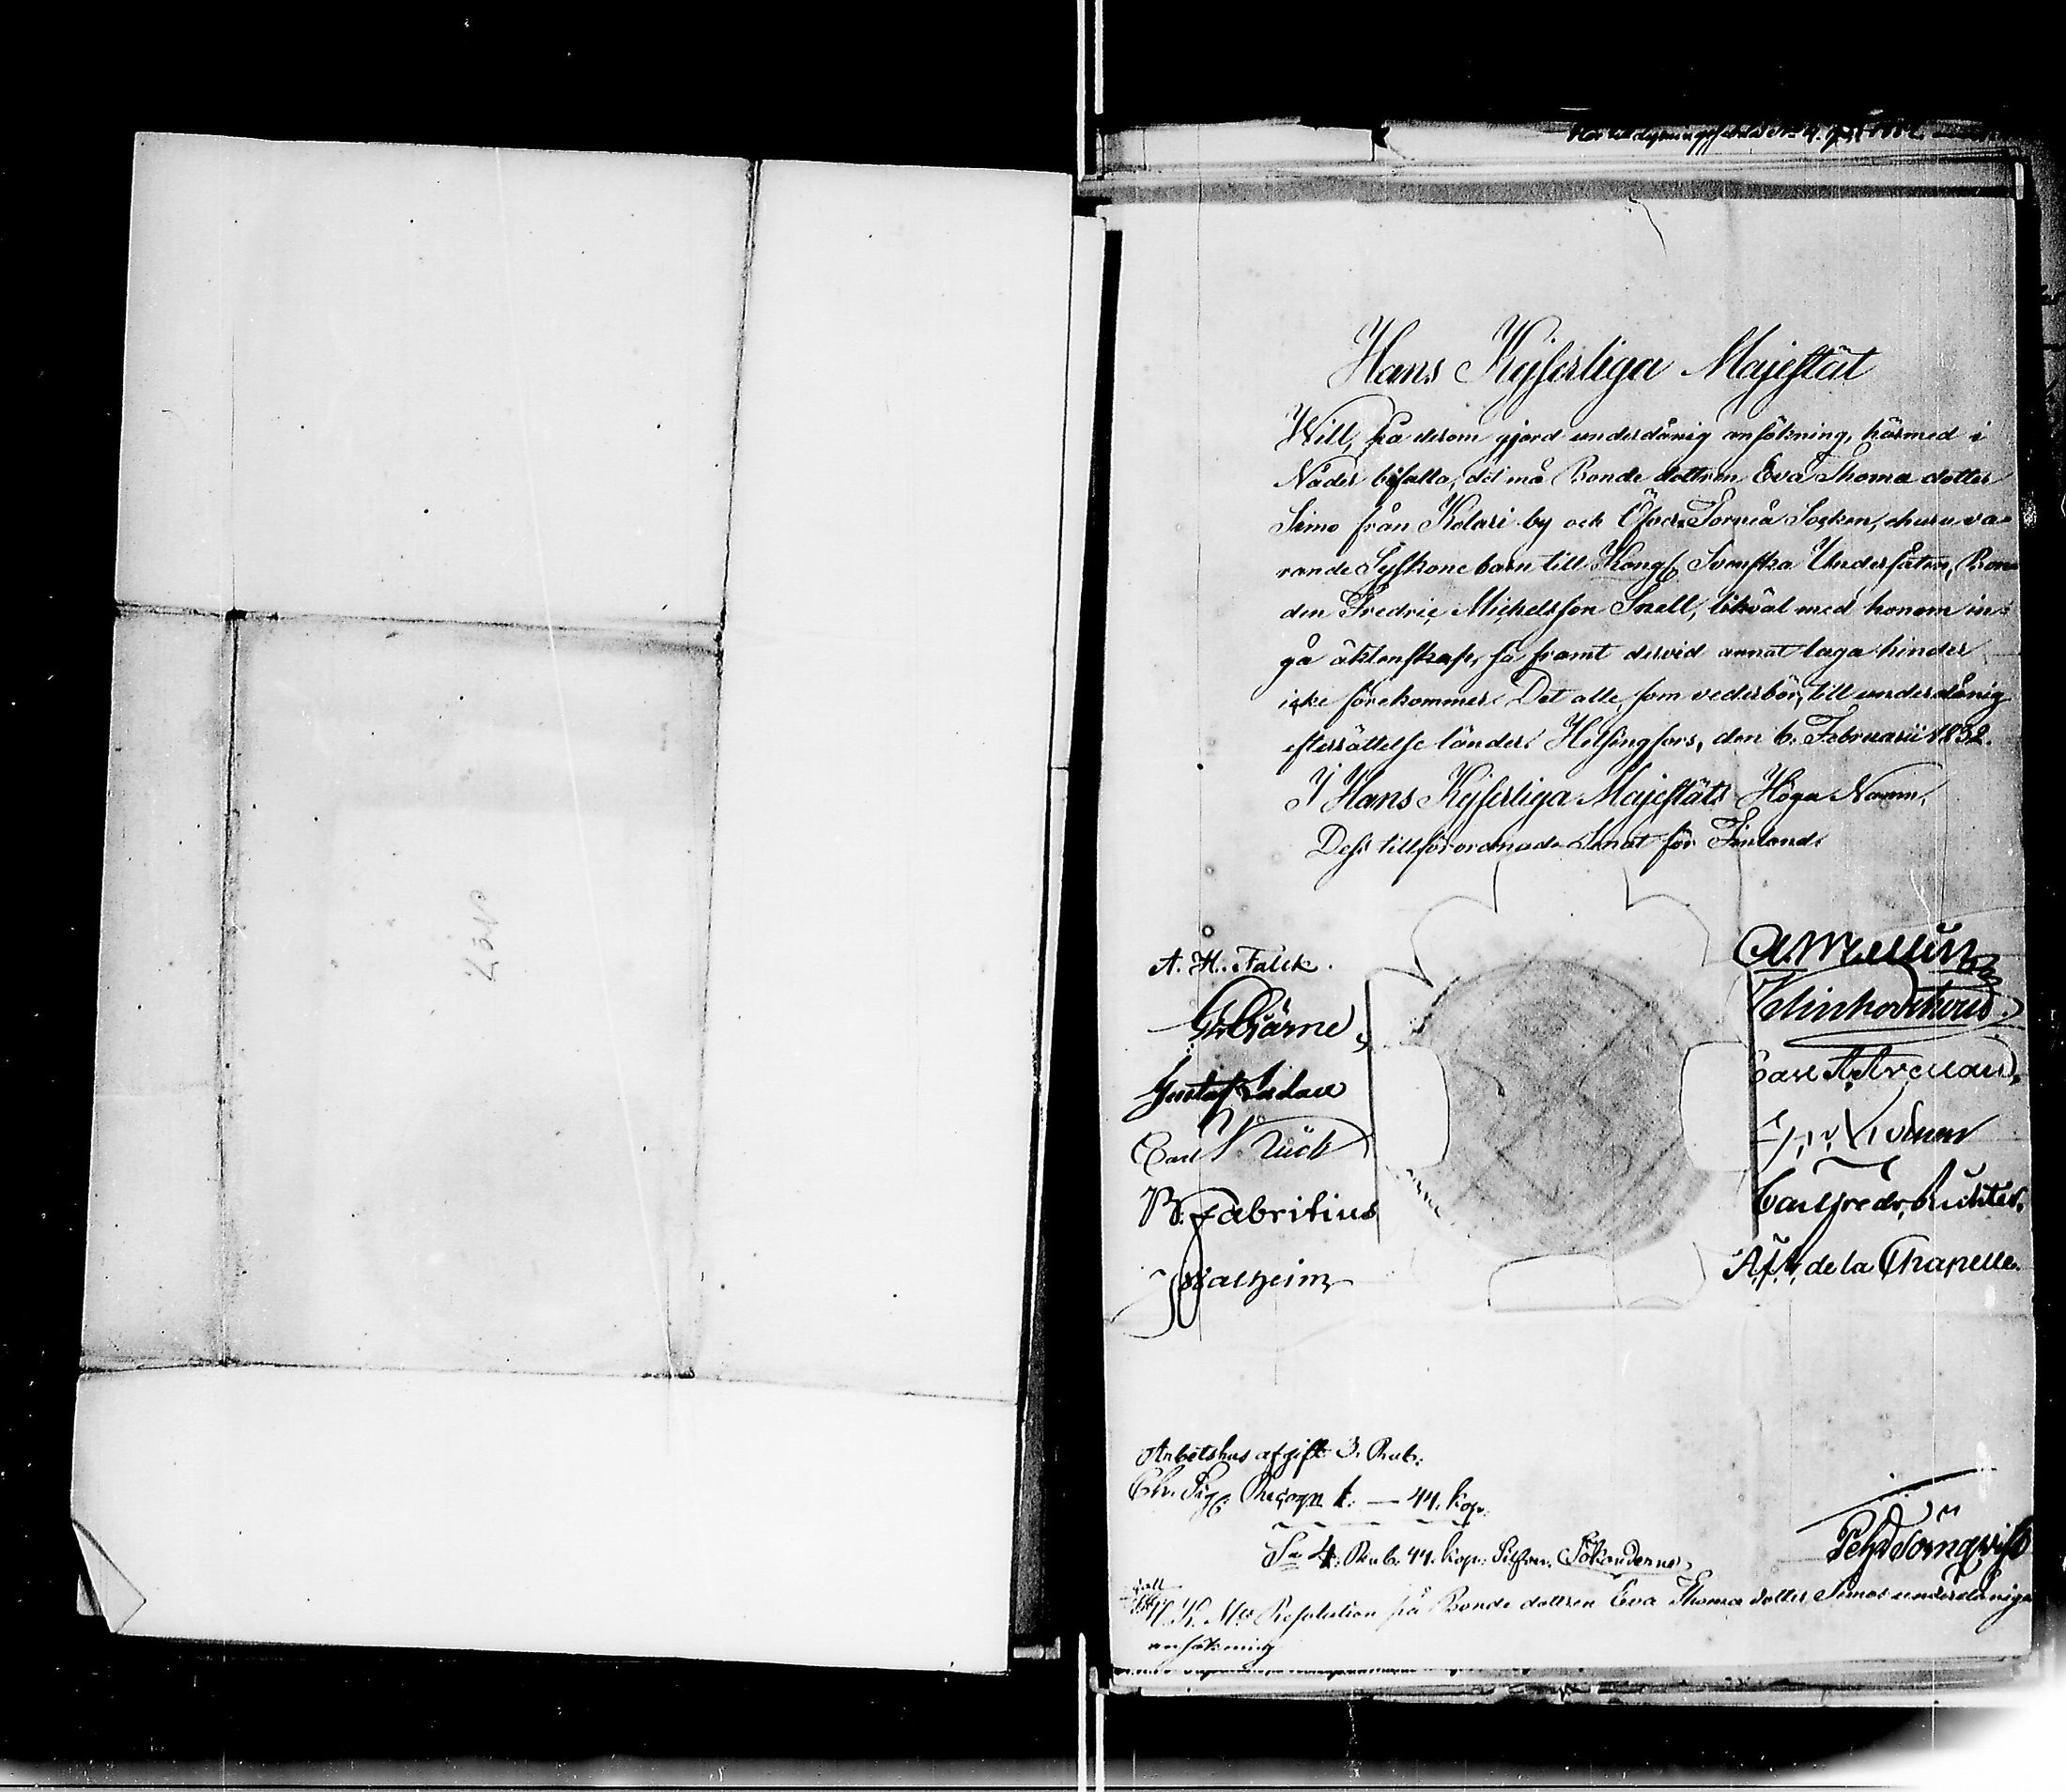 Hans Kejserliga Majestät
Will, på derom gjord underdånig ansökning, härmed i
Nåder bifalla, det må Bonde dottren Eva Thoma dotter
Simo från Kolari by och Öfver Torneå Socken, ehuru va-
rande Syskonebarn till Kongl. Svenska Undersåten, Bon-
den Fredric Michelsson Snell, likväl med honom in-
gå äktenskap, så framt dervid annat laga hinder
icke förekommer. Det alle, som vederbör, till underdånig
efterrättelse länder. Helsingfors, den 6. Februarii 1832.
I Hans Kejserliga Majestäts Höga Namn,
Dess tillförordnade Senat för Finland.
A. H. Falck.
G. Hjärne
Gustaf Ladau
Carl Rück
B. Fabritius
Walheim
A. Mellin
Klinkowström
Carl
Carl Fredr. Richter.
A. F. de la Chapelle.
Arbetshus afgift 3. Rub.
Ch. Sig. Recogn 1. — 44. Kop.
Sa 4. Rub. 44. Kop. Silfver. Sökanderne
Pehr Törnqvist
H. K. Mts Resolution på Bonde dottren Eva Thoma dotter Simos underdåniga
ansökning